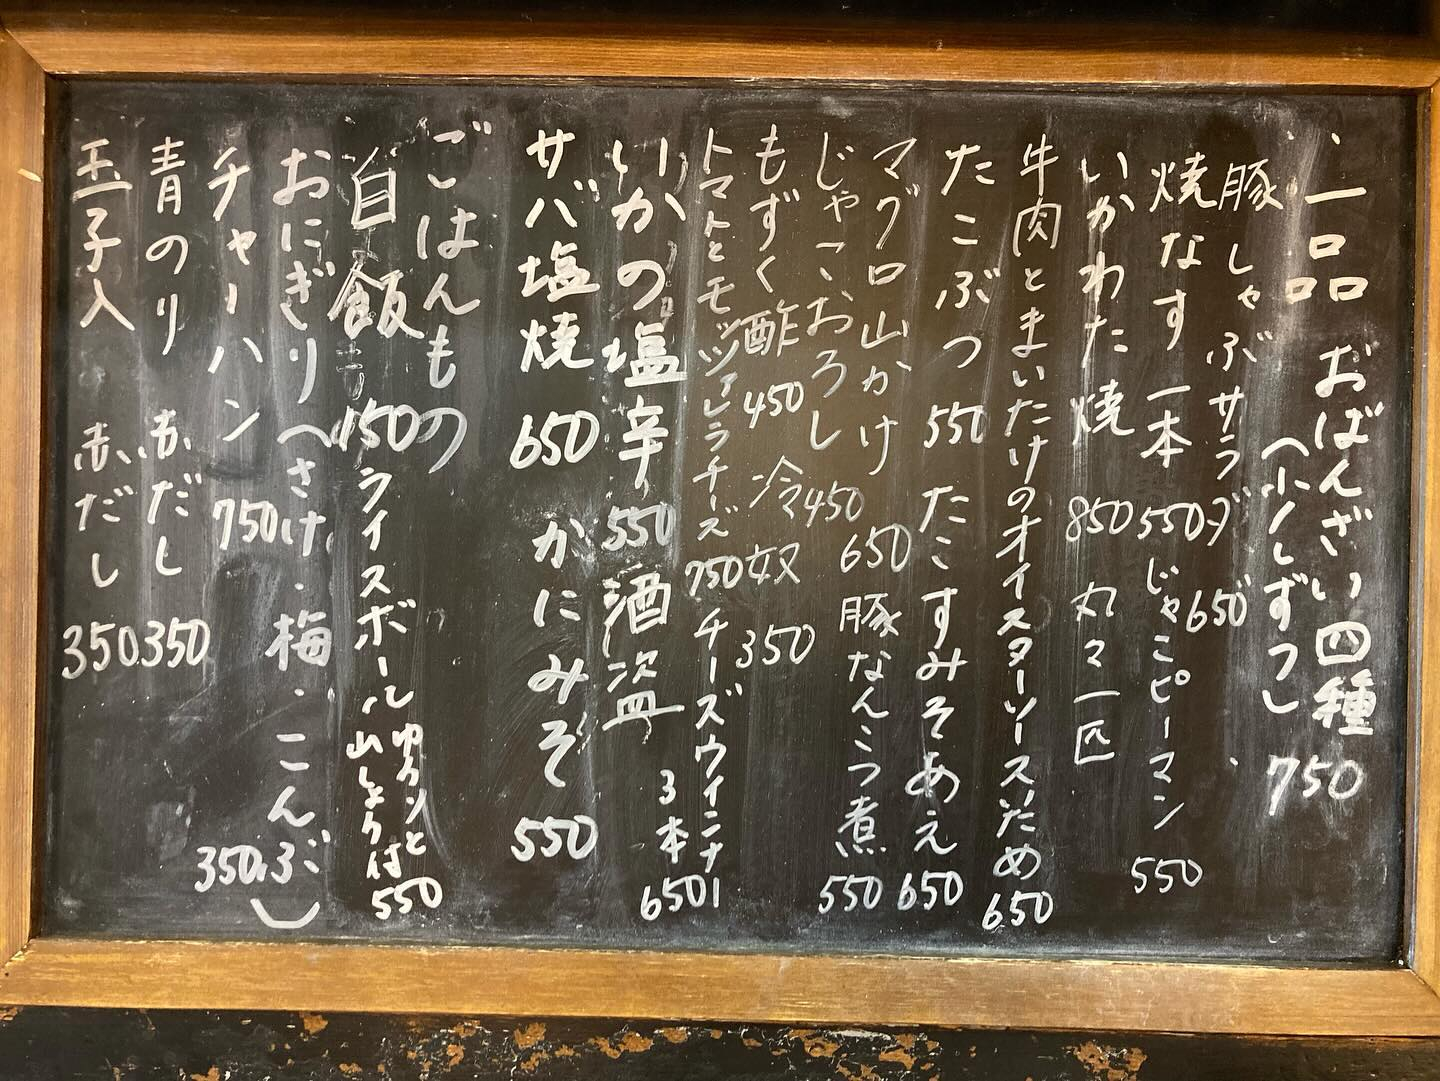 一品
おばんざい四種
(少しずつ) 750
豚しゃぶサラダ 650
焼なす 一本 550
じゃこピーマン 550
いかわた焼 850
丸々一匹
牛肉とまいたけのオイスターソースいため 650
たこぶつ 550
たこすみそあえ 650
マグロ山かけ 650
豚なんこつ煮 550
じゃこおろし 450
もずく酢 450
冷奴 350
トマトとモッツァレラチーズ 750
チーズウインナー
3本 650
いかの塩辛 550
酒盗
サバ塩焼 650
かにみそ 550
ごはんもの
白飯 150
ライスボール
山しょう付 550
おにぎり(さけ・梅・こんぶ) 350
チャーハン 750
青のり 赤だし 350
玉子入 赤だし 350